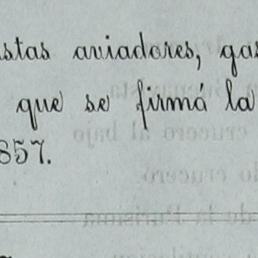 stas aviadores, gas
que se firmá la
857.